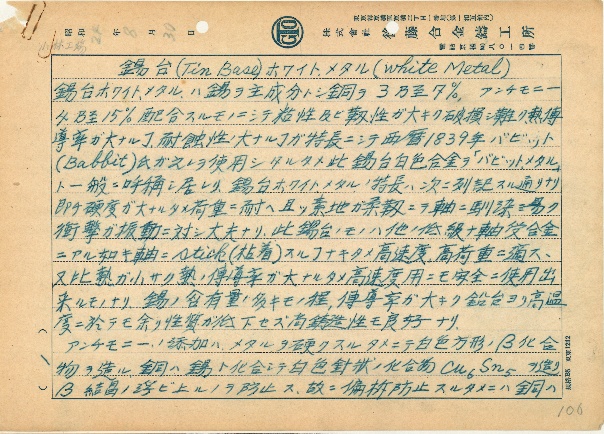 東京都京橋区京橋二丁目一番地(第一相互館内)
株式会社 後藤合金鋳工所
電話京橋局八〇一四番
昭和 24 年 8 月 30 日
GTO
錫台(Tin Base)ホワイトメタル(White Metal)
錫台ホワイトメタルハ錫ヲ主成分トシ銅ヲ3乃至7%、アンチモニー
4乃至15%配合スルモノニシテ粘性及ビ靱性ガ大キク破損シ難ク熱傳
導率ガ大ナルコト、耐蝕性ノ大ナルコトガ特長ニシテ西暦1839年バビット
(Babbit)氏ガ之レヲ使用シタルタメ此錫台白色合金ヲ「バビットメタル」
ト一般ニ呼稱シ居レリ、錫台ホワイトメタルノ特長ハ次ニ列記スル通リナリ
即チ硬度ガ大ナルタメ荷重ニ耐ヘ且ツ素地ガ柔靱ニテ軸ニ馴染ミ易ク
衝撃ガ振動ニ対シ丈夫ナリ、此錫台ノモノハ他ノ低級ナ軸受合金
ニアル如キ軸ニ stick(粘着)スルコトナキタメ高速度、高荷重ニ適ス、
又比熱ガ小サク熱ノ傳導率ガ大ナルタメ高速度用ニモ安全ニ使用出
来ルモノナリ、錫ノ含有量ノ多キモノ程、傳導率ガ大キク鉛台ヨリ高温
度ニ於テモ余リ性質ガ低下セズ尚鋳造性モ良好ナリ、
アンチモニーノ添加ハ、メタルヲ硬クスルタメニテ白色方形ノβ化合
物ヲ造ル、銅ハ錫ト化合シテ白色針状ノ化合物 Cu6Sn5 ヲ造リ
β結晶ノ浮ビ上ルノヲ防止ス、故ニ偏析防止スルタメニハ銅ハ
106